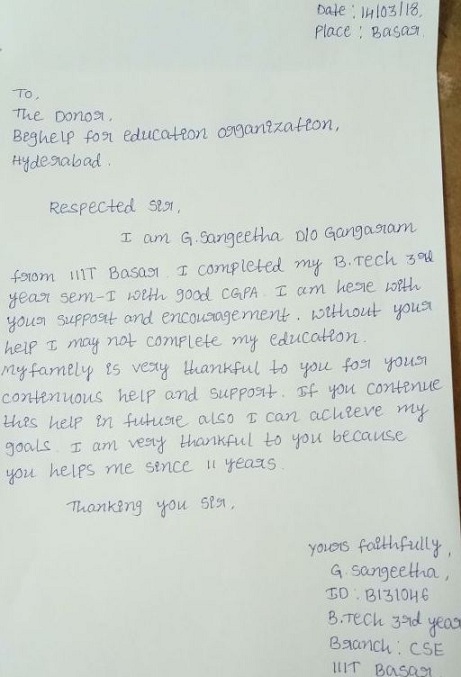 Date : 14/03/18.
Place : Basar.
To,
The Donor,
Beghelp for education organization,
Hyderabad.
Respected Sir,
I am G.Sangeetha D/o Gangaram
from IIIT Basar. I completed my B.Tech 3rd
year sem-I with good CGPA. I am here with
your support and encouragement. without your
help I may not complete my education.
My family is very thankful to you for your
continuous help and support. If you continue
this help in future also I can achieve my
goals. I am very thankful to you because
you helps me since 11 years.
Thanking you sir.
yours faithfully,
G. Sangeetha,
ID : B131046
B.Tech 3rd year
Branch : CSE
IIIT Basar